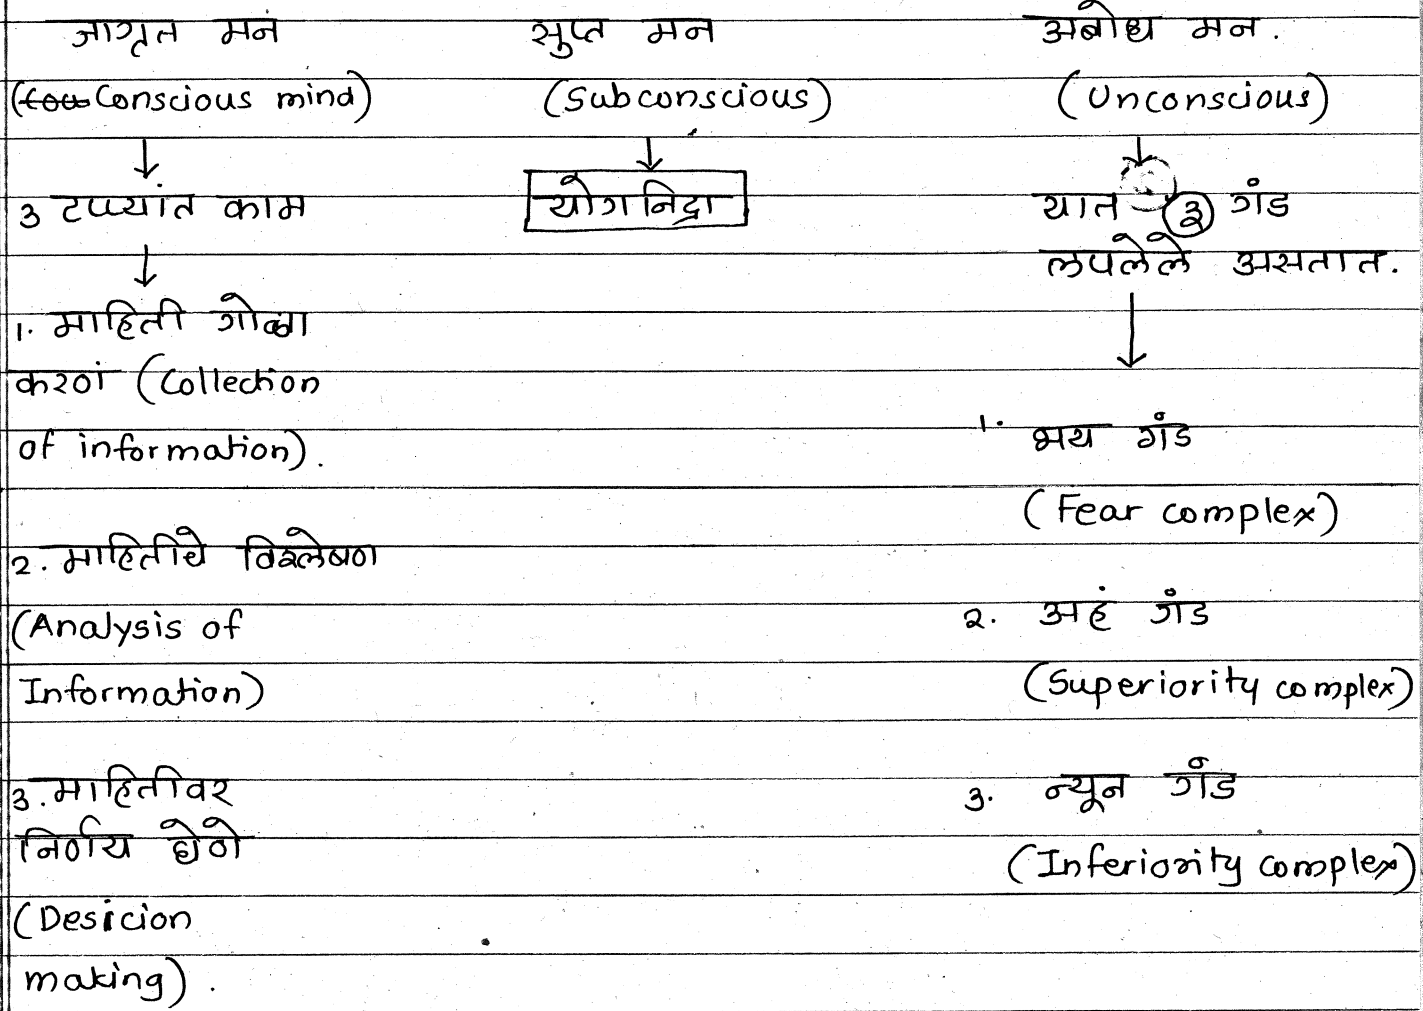 जागृत मन
(Conscious mind)
↓
3 टप्प्यांत काम
↓
1. माहिती गोळा
करणं (Collection
of information).
2. माहितीचे विश्लेषण
(Analysis of
Information)
3. माहितीवर
निर्णय घेणे
(Desicion
making).
सुप्त मन
(Subconscious)
↓
योगनिद्रा
अबोध मन.
(Unconscious)
↓
यात ३ गंड
लपलेले असतात.
↓
1. भय गंड
(Fear complex)
२. अहं गंड
(Superiority complex)
3. न्यून गंड
(Inferiority complex)